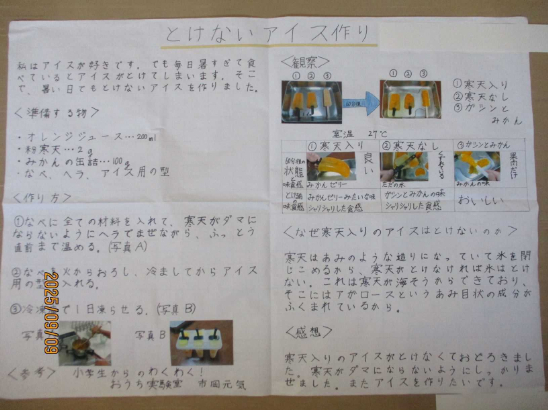 とけないアイス作り
私はアイスが好きです。でも毎日暑すぎて食
べているとアイスがとけてしまいます。そこ
で、暑い日でもとけないアイスを作りました。
<準備する物>
・オレンジジュース…200ml
・粉寒天…2g
・みかんの缶詰…100g
・なべ、ヘラ、アイス用の型
<作り方>
①なべに全ての材料を入れて、寒天がダマに
ならないようにヘラでまぜながら、ふっとう
直前まで温める。(写真A)
②なべ 火からおろし、冷ましてからアイス
用の型 入れる。
③冷凍 で1日凍らせる。(写真B)
写真 写真B
<参考> 小学生からのわくわく!
おうち実験室 市岡元気
2025/09/09
<観察>
① ② ③
① ② ③
①寒天入り
②寒天なし
③ゼラチンと
みかん
室温 27℃
①寒天入り ②寒天なし
状態 良い
味 食感 みかんゼリー
みかんの味
みかんゼリーみたいな味
シャリシャリした食感
シャリシャリした食感
おいしい
<なぜ寒天入りのアイスはとけないのか>
寒天はあみのような造りになっていて水を閉
じこめるから、寒天がとけなければ氷はとけ
ない。これは寒天が海そうからできており、
そこにはアガロースというあみ目状の成分が
ふくまれているから。
<感想>
寒天入りのアイスがとけなくておどろきまし
た。寒天がダマにならないようにしっかりま
ぜました。またアイスを作りたいです。